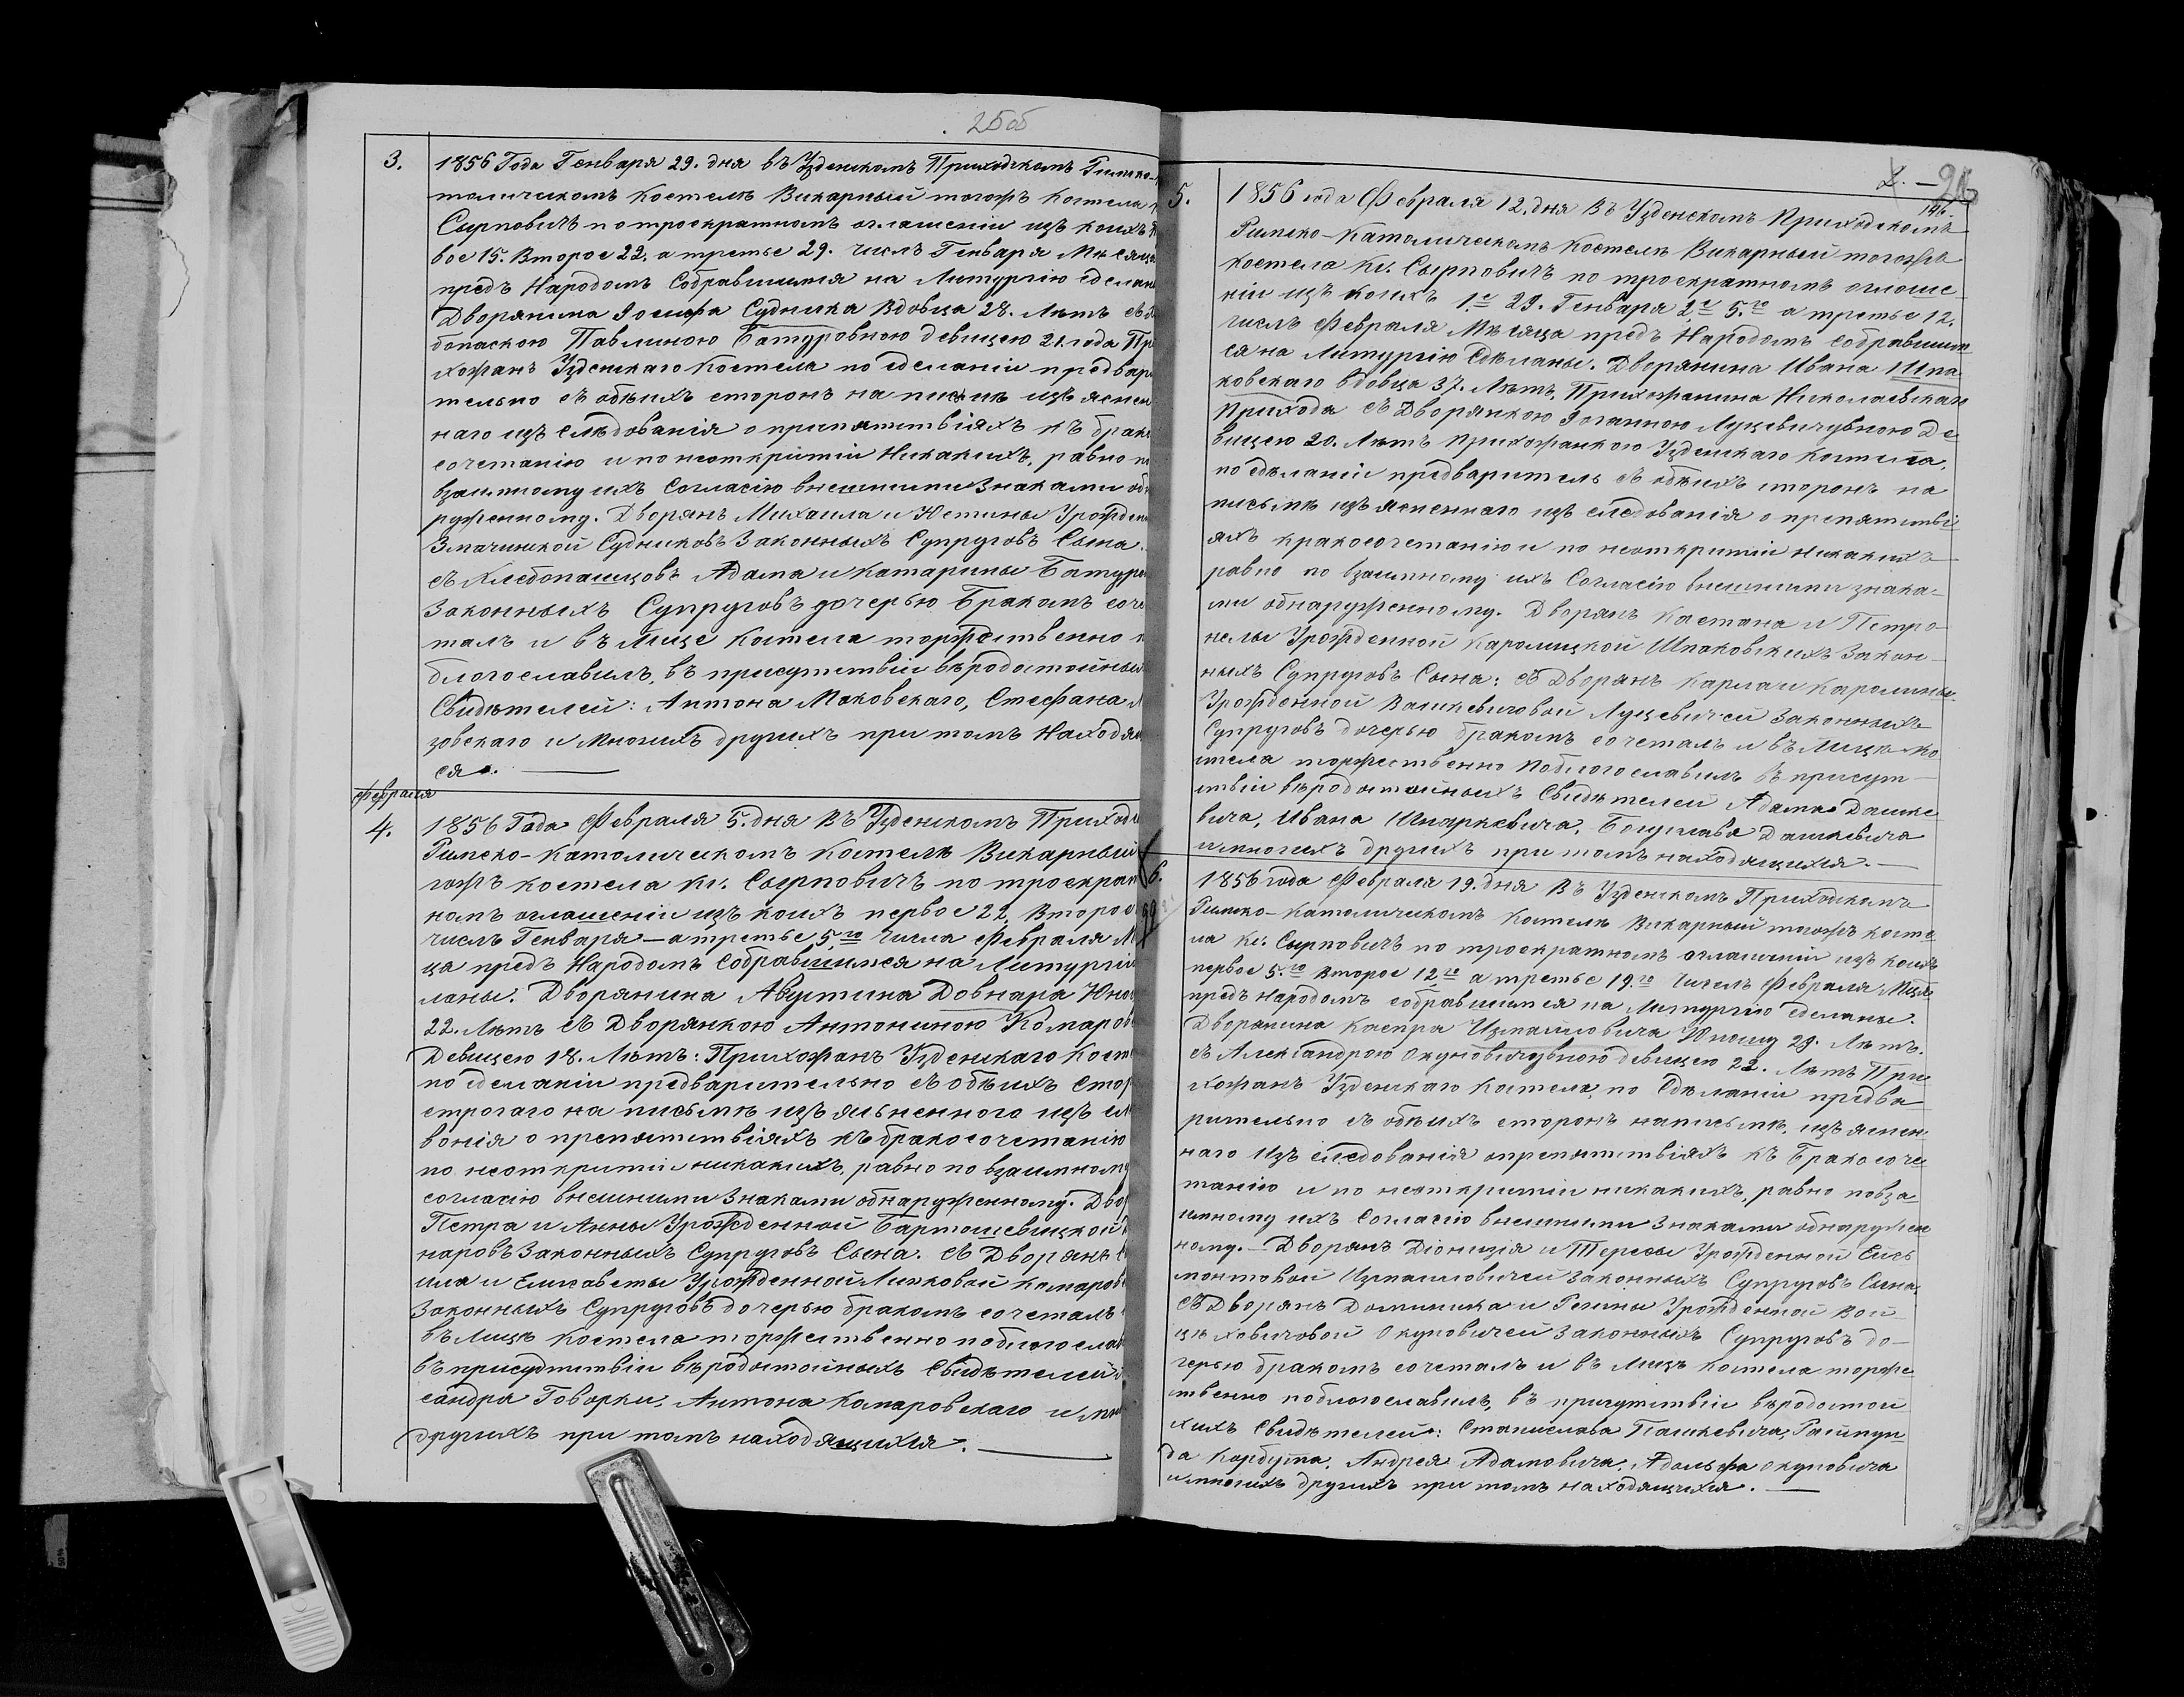 25об
3.
1856 Года Генваря 29. дня въ Узденскомъ Приходскомъ Римско-
толическомъ Костелѣ Викарный тогожъ Костела
Сырповичъ по троекратномъ оглашеніи изъ коихъ
вое 15. Второе 22. а третье 29. числъ Генваря Мѣсяца
предъ Народомъ Собравшимся на Литургію сделан
Дворянина Іосифа Судника Вдовца 28. Лѣтъ съ
бопаскою Павлиною Батуровною девицею 21. года Пр
хожанъ Узденскаго Костела по сделаніи предвар
тельно съ обѣихъ сторонъ на письмѣ изъяснен
наго изъ слѣдованія о препятствіяхъ къ брако
сочетанію и по неоткрытіи Никакихъ, равно п
взаимному ихъ Согласію внешними Знаками обн
руженному. Дворянъ Михаила и Юстины Урожден
Змачинской Судниковъ Законныхъ Супруговъ Сына.
съ Хлебопашцовъ Адама и Катарины Батур
Законныхъ Супруговъ дочерью Бракомъ соче
талъ и въ Лице Костела торжественно п
благославилъ, въ присутствіи вѣродостойных
Свидѣтелей: Антона Маковскаго, Стефана
зовскаго и Многихъ другихъ при томъ Находящ
ся.
Февраля
4.
1856 Года Февраля 5. дня Въ Узденскомъ Приходс
Римско-Католическомъ Костелѣ Викарный
гожъ костела Кс. Сырповичъ по троекрат
номъ оглашеніи изъ коихъ первое 22. Второе
числъ Генваря — а третье 5.го Числа Февраля М
ца предъ Народомъ Собравшимся на Литургію
ланы. Дворянина Августина Довнара Юно
22. Лѣтъ съ Дворянкою Антониною Комаров
Девицею 18. Лѣтъ: Прихожанъ Узденскаго Кост
по сделаніи предварительно съ обѣихъ Сто
строгаго на письмѣ изъясьненного изъ сл
вонія о препятствіяхъ къ бракосочетанію
по неоткрытіи никакихъ, равно по взаимному
согласію внешними Знаками обнаруженному. Дво
Петра и Анны Урожденной Бартошевицкой
наровъ Законныхъ Супруговъ Сына. съ Дворянъ
ила и Елисаветы Урожденной Линковой Комаров
Законныхъ Супруговъ дочерью бракомъ сочеталъ
въ Лицѣ Костела торжественно поблагослав
въ присудтствіи вѣродостойныхъ Свидѣтелей
сандра Говорки, Антона Комаровскаго и мн
другихъ при томъ находящихся.
146.
5.
1856 года Февраля 12. дня Въ Узденскомъ Приходскомъ
Римско-Католическомъ Костелѣ Викарный тогожъ
костела Кс. Сырповичъ по троекратномъ оглаше
ніи изъ коихъ 1.е 29. Генваря 2.е 5.го а третье 12.
числъ Февраля Мѣсяца предъ Народомъ собравшим
ся на Литургію Сдѣланы. Дворянина Ивана Шпа
ковскаго вдовца 37. Лѣтъ, Прихожанина Николаевскаго
Прихода съ Дворянкою Іоганною Луцевичувною Де
вицею 20. Лѣтъ прихожанкою Узденскаго Костела,
по сдѣланіи предваритель съ обѣихъ сторонъ на
письмѣ изъясненнаго изъ следованія о препятстві
яхъ кракосочетанію и по неоткрытіи никакихъ
равно по взаимному ихъ Согласію внешними знака-
ми обнаруженному. Дворянъ Каетана и Петро-
нелы Урожденной Каролицкой Шпаковскихъ Закон
ныхъ Супруговъ Сына: съ Дворянъ Карла и Каролины
Урожденной Вашкевичовой Луцевичей Законныхъ
Супруговъ дочерью бракомъ сочеталъ и въ Лицѣ Ко
стела торжественно поблагославилъ въ присут-
ствіи вѣродостойныхъ Свидѣтелей Адама Дашке
вича, Ивана Шпаркевича, Богуслава Дашкевича
и многихъ другихъ при томъ находящихся.
6.
1856 года Февраля 19. дня Въ Узденскомъ Приходскомъ
Римско-Католическомъ Костелѣ Викарный тогожъ косте
ла Кс. Сырповичъ по троекратномъ оглашеніи изъ коихъ
первое 5.го второе 12.го а третье 19.го Числъ Февраля Мца
предъ народомъ собравшимся на Литургію сделаны.
Дворянина Каспра Измаиловича Юношу 29. Лѣтъ.
съ Александрою Окуновичувною девицею 22. Лѣтъ При
хожанъ Узденскаго Костела, по Сдѣланіи предва
рительно съ обѣихъ сторонъ написьмѣ, изъяснен
наго Изъ следованія опрепятствіяхъ къ Бракосоче
танію и по неоткрытіи никакихъ, равно повза
имному ихъ Согласію внешними Знаками обнаружен
ному. — Дворянъ Діонизія и Тересы Урожденной Ейсы
монтовой Измаиловичей Законныхъ Супруговъ Сына
съ Дворянъ Доминика и Регины Урожденной Вой
цѣховичовой Окуновичей Законныхъ Супруговъ до-
черью бракомъ сочеталъ и въ Лицѣ Костела торже
твенно поблагославилъ, въ присутствіи вѣродостой
хихъ Свидѣтелей: Станислава Пашкевича, Раймун
да Корбута, Андрея Адамовича, Адольфа Окуновича
и многихъ другихъ при томъ находящихся.